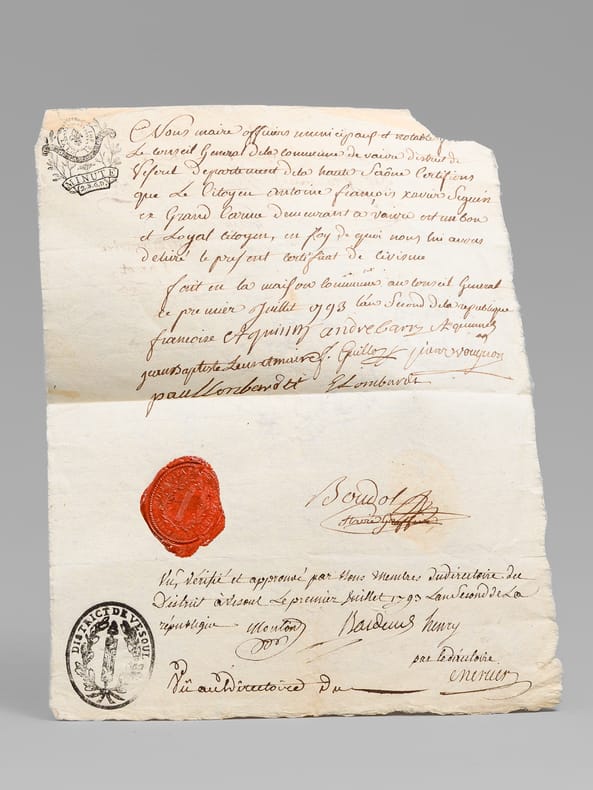 MINUTE
Nous maire officiers municipaux et notable
Le Conseil General de la Commune de vaivre district de
Vesoul Departement de la haute Saône Certifions
que Le Citoyen antoine françois xavier Seguin
ex Grand Carme demeurant a vaivre est un bon
et Loyal citoyen, en foy de quoi nous lui avons
delivré le present certificat de civisme
fait en la maison Commune au Conseil General
ce premier Juillet 1793 L'an Second de la republique
françoise
jean Baptiste maire Guilloz pierre
paul Lombardet Lombardet
Boudot
Vu, Vérifié et approuvé par Nous Membres du directoire du
District à Vesoul Le premier Juillet 1793 L'an Second de La
république Henry
par le directoire
Mercier
Vû au Directoire du
DISTRICT DE VESOUL